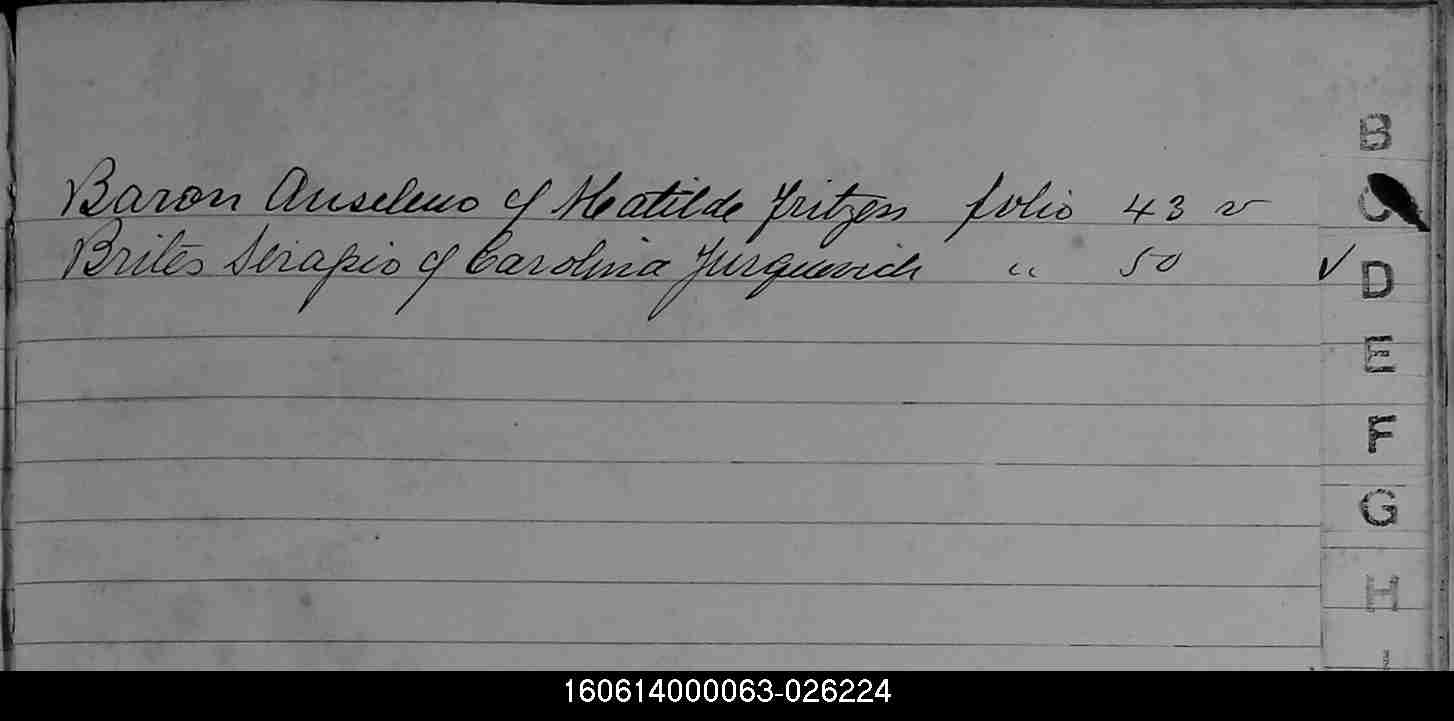 B
Baron Anselmo y Matilde Fritzen folio 43 v
C
Brites Serapio y Carolina Jurguevich " 50 √
D
E
F
G
H
I
160614000063-026224